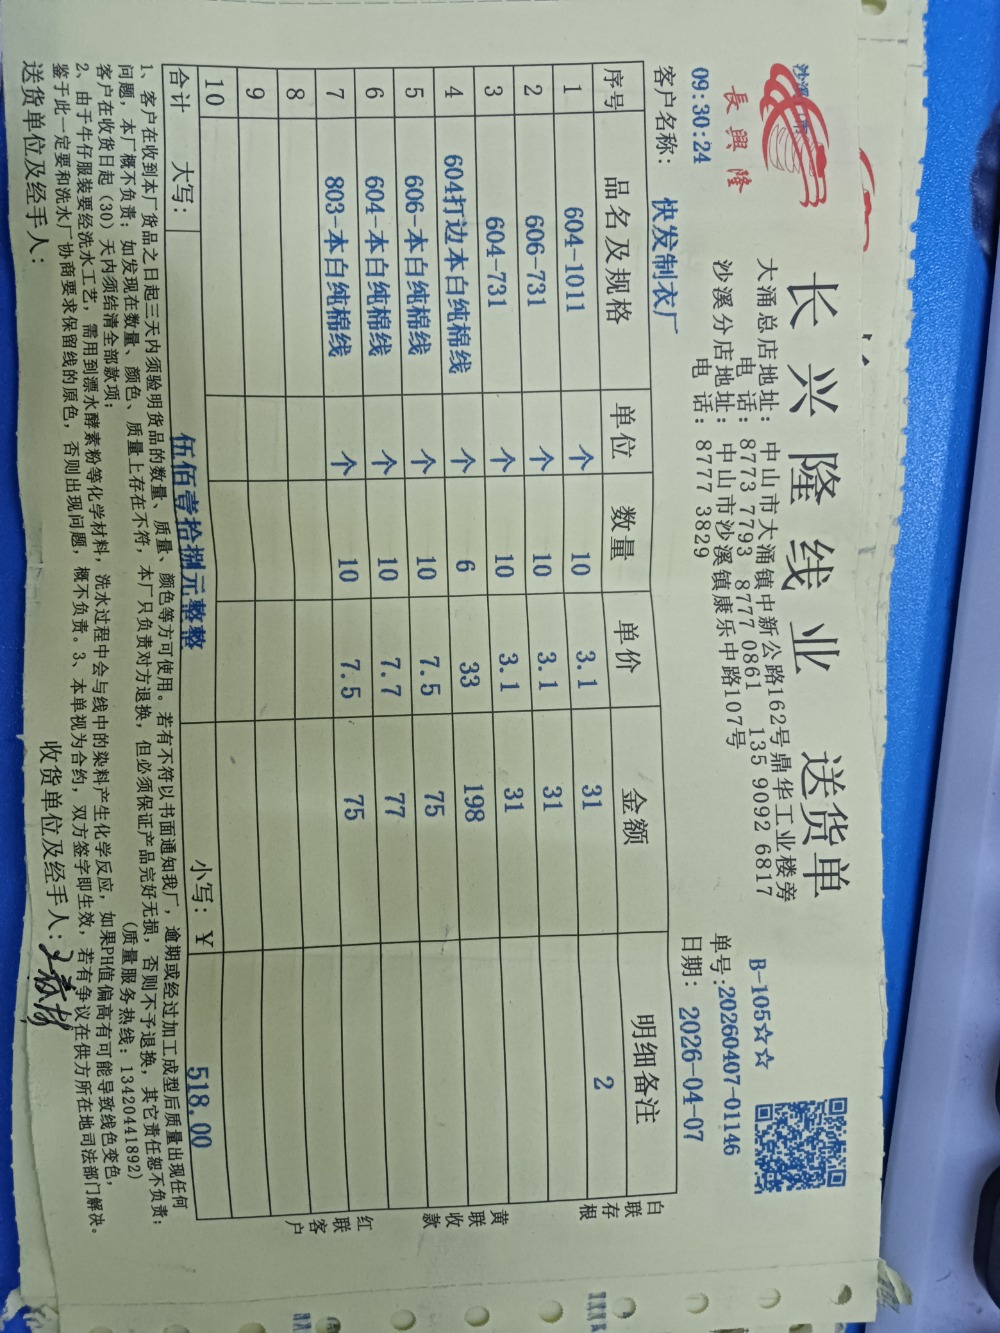 长兴隆线业 送货单
長興隆
大涌总店地址：中山市大涌镇中新公路162号鼎华工业楼旁
电话：8773 7793 8777 0861 135 9092 6817
沙溪分店地址：中山市沙溪镇康乐中路107号
电话：8777 3829
09:30:24
B-105☆☆
单号:20260407-01146
客户名称： 快发制衣厂 日期： 2026-04-07
序号 品名及规格 单位 数量 单价 金额 明细备注
1 604-1011 个 10 3.1 31 2
2 606-731 个 10 3.1 31
3 604-731 个 10 3.1 31
4 604打边本白纯棉线 个 6 33 198
5 606-本白纯棉线 个 10 7.5 75
6 604-本白纯棉线 个 10 7.7 77
7 803-本白纯棉线 个 10 7.5 75
8
9
10
合计 大写： 伍佰壹拾捌元整整 小写：￥ 518.00
白联存根
黄联收款
红联客户
1、客户在收到本厂货品之日起三天内须验明货品的数量、质量、颜色等方可使用。若有不符以书面通知我厂，逾期或经过加工成型后质量出现任何
问题，本厂概不负责；如发现在数量、颜色、质量上存在不符，本厂只负责对方退换，但必须保证产品完好无损，否则不予退换，其它责任恕不负责；
客户在收货日起（30）天内须结清全部款项； （质量服务热线：13420441892）
2、由于牛仔服装要经洗水工艺，需用到漂水酵素粉等化学材料，洗水过程中会与线中的染料产生化学反应，如果PH值偏高有可能导致线色变色，
鉴于此一定要和洗水厂协商要求保留线的原色，否则出现问题，概不负责。3、本单视为合约，双方签字即生效，若有争议在供方所在地司法部门解决。
送货单位及经手人： 收货单位及经手人：